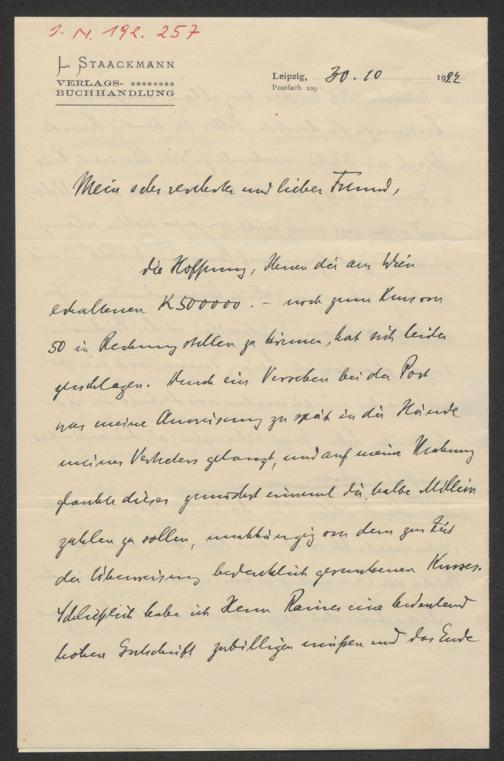 J. N. 192.257
L. STAACKMANN
VERLAGS-
BUCHHANDLUNG
Leipzig, 30. 10 1922
Postfach 109
Mein sehr verehrter und lieber Freund,
die Hoffnung, Ihnen die aus Wien
erhaltenen K 500000.- noch zum Kurs von
50 in Rechnung stellen zu können, hat sich leider
zerschlagen. Durch ein Versehen bei der Post
war meine Anweisung zu spät in die Hände
meines Vertreters gelangt, und auf meine Mahnung
glaubte dieser zunächst einmal die halbe Million
zahlen zu sollen, unabhängig von dem zur Zeit
der Überweisung bedenklich gesunkenen Kurses.
Schließlich habe ich Herrn Rainer eine bedeutend
höhere Gutschrift zubilligen müßen und das Ende